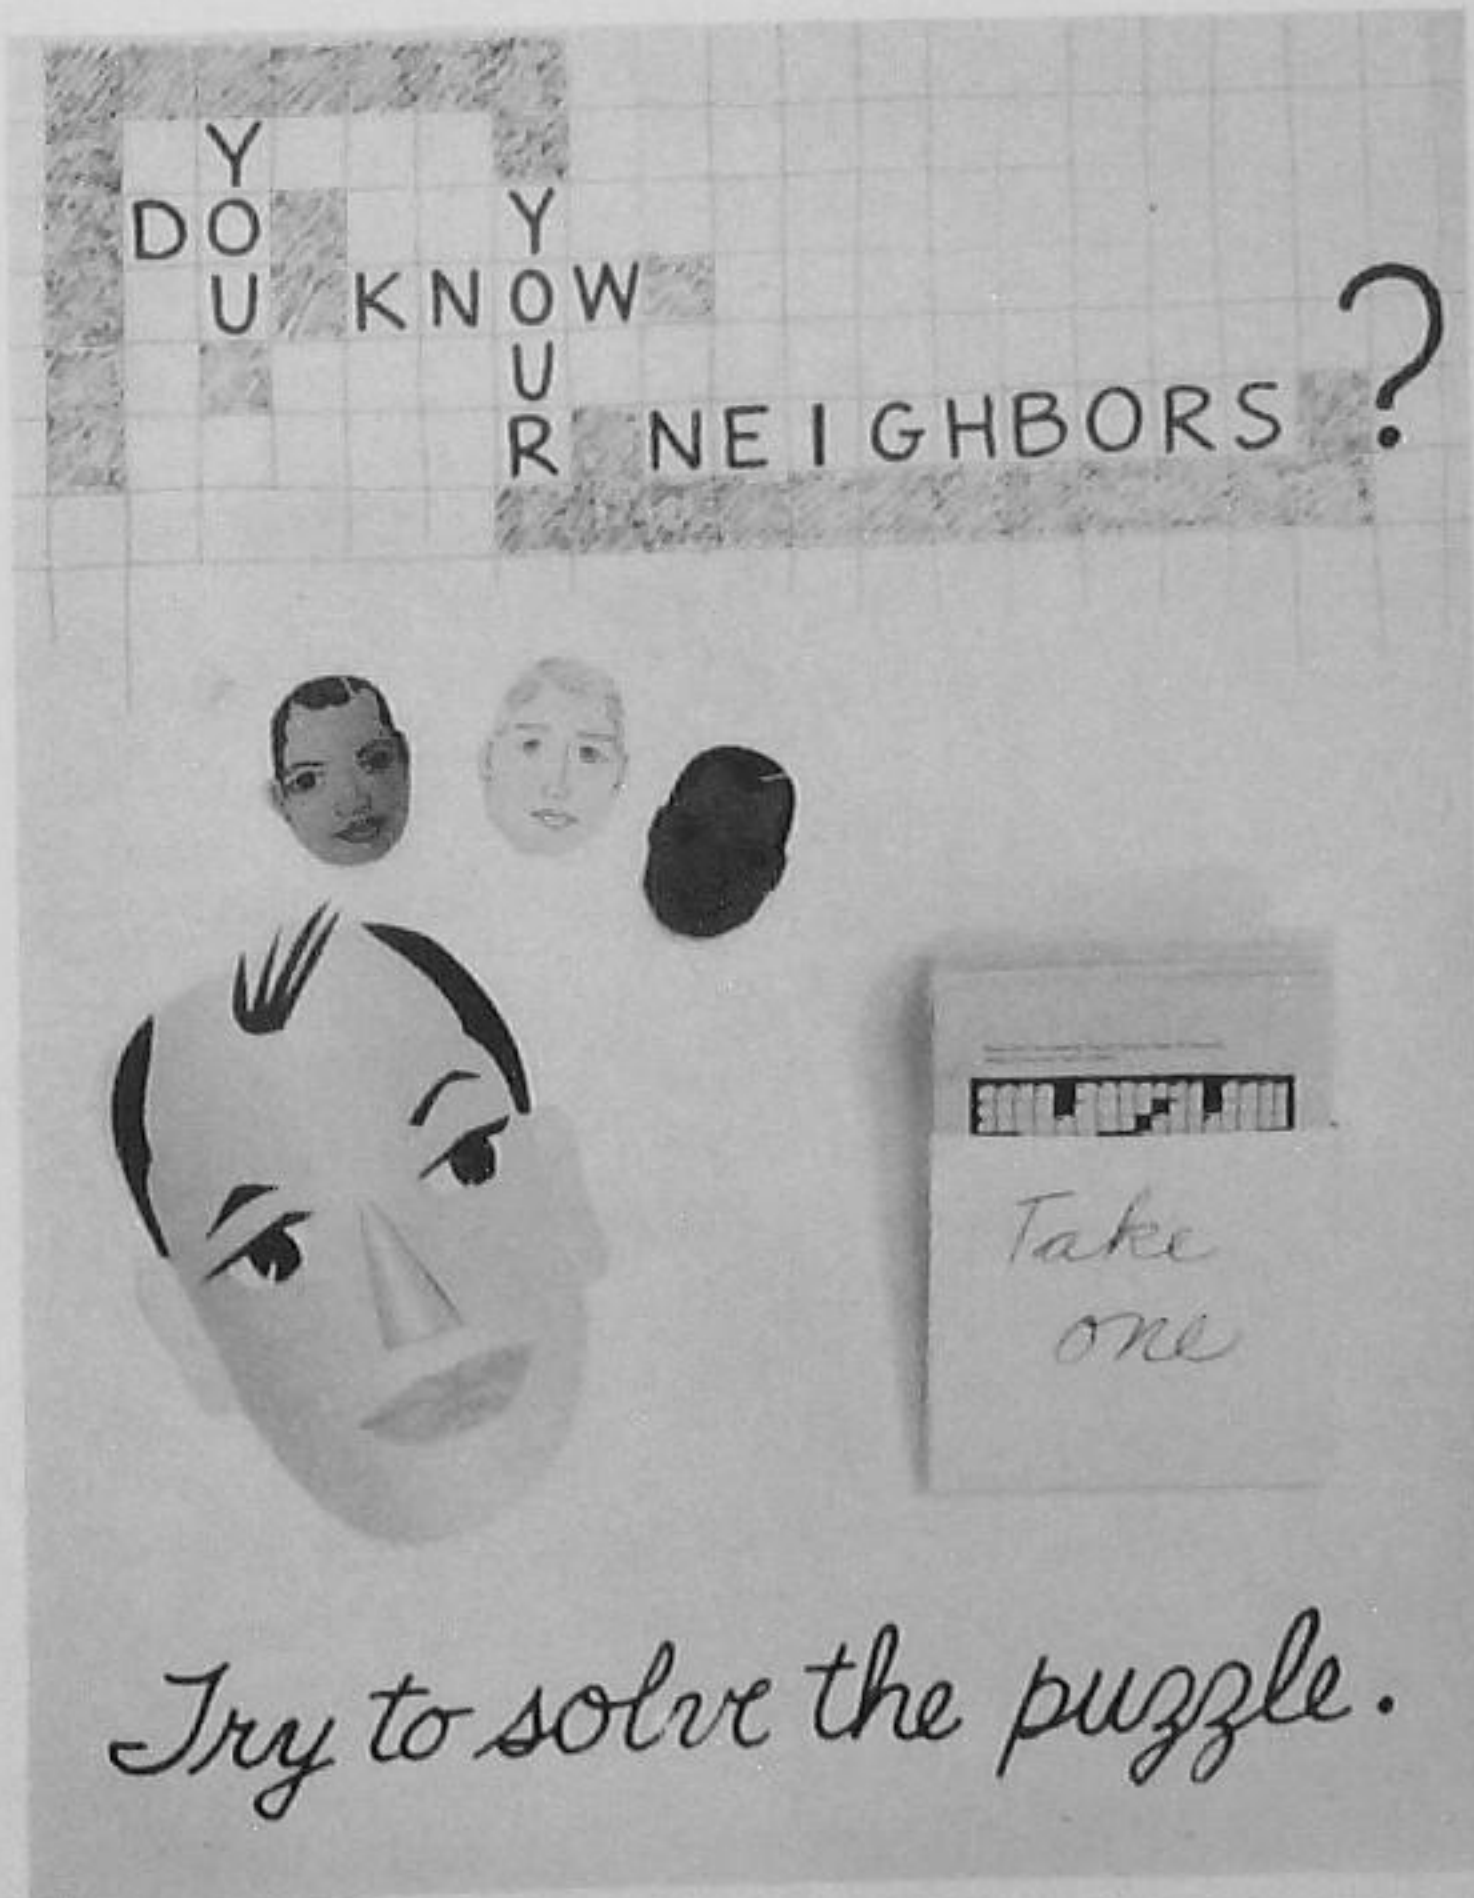 DO YOU KNOW YOUR NEIGHBORS ?
Take
one
Try to solve the puzzle.